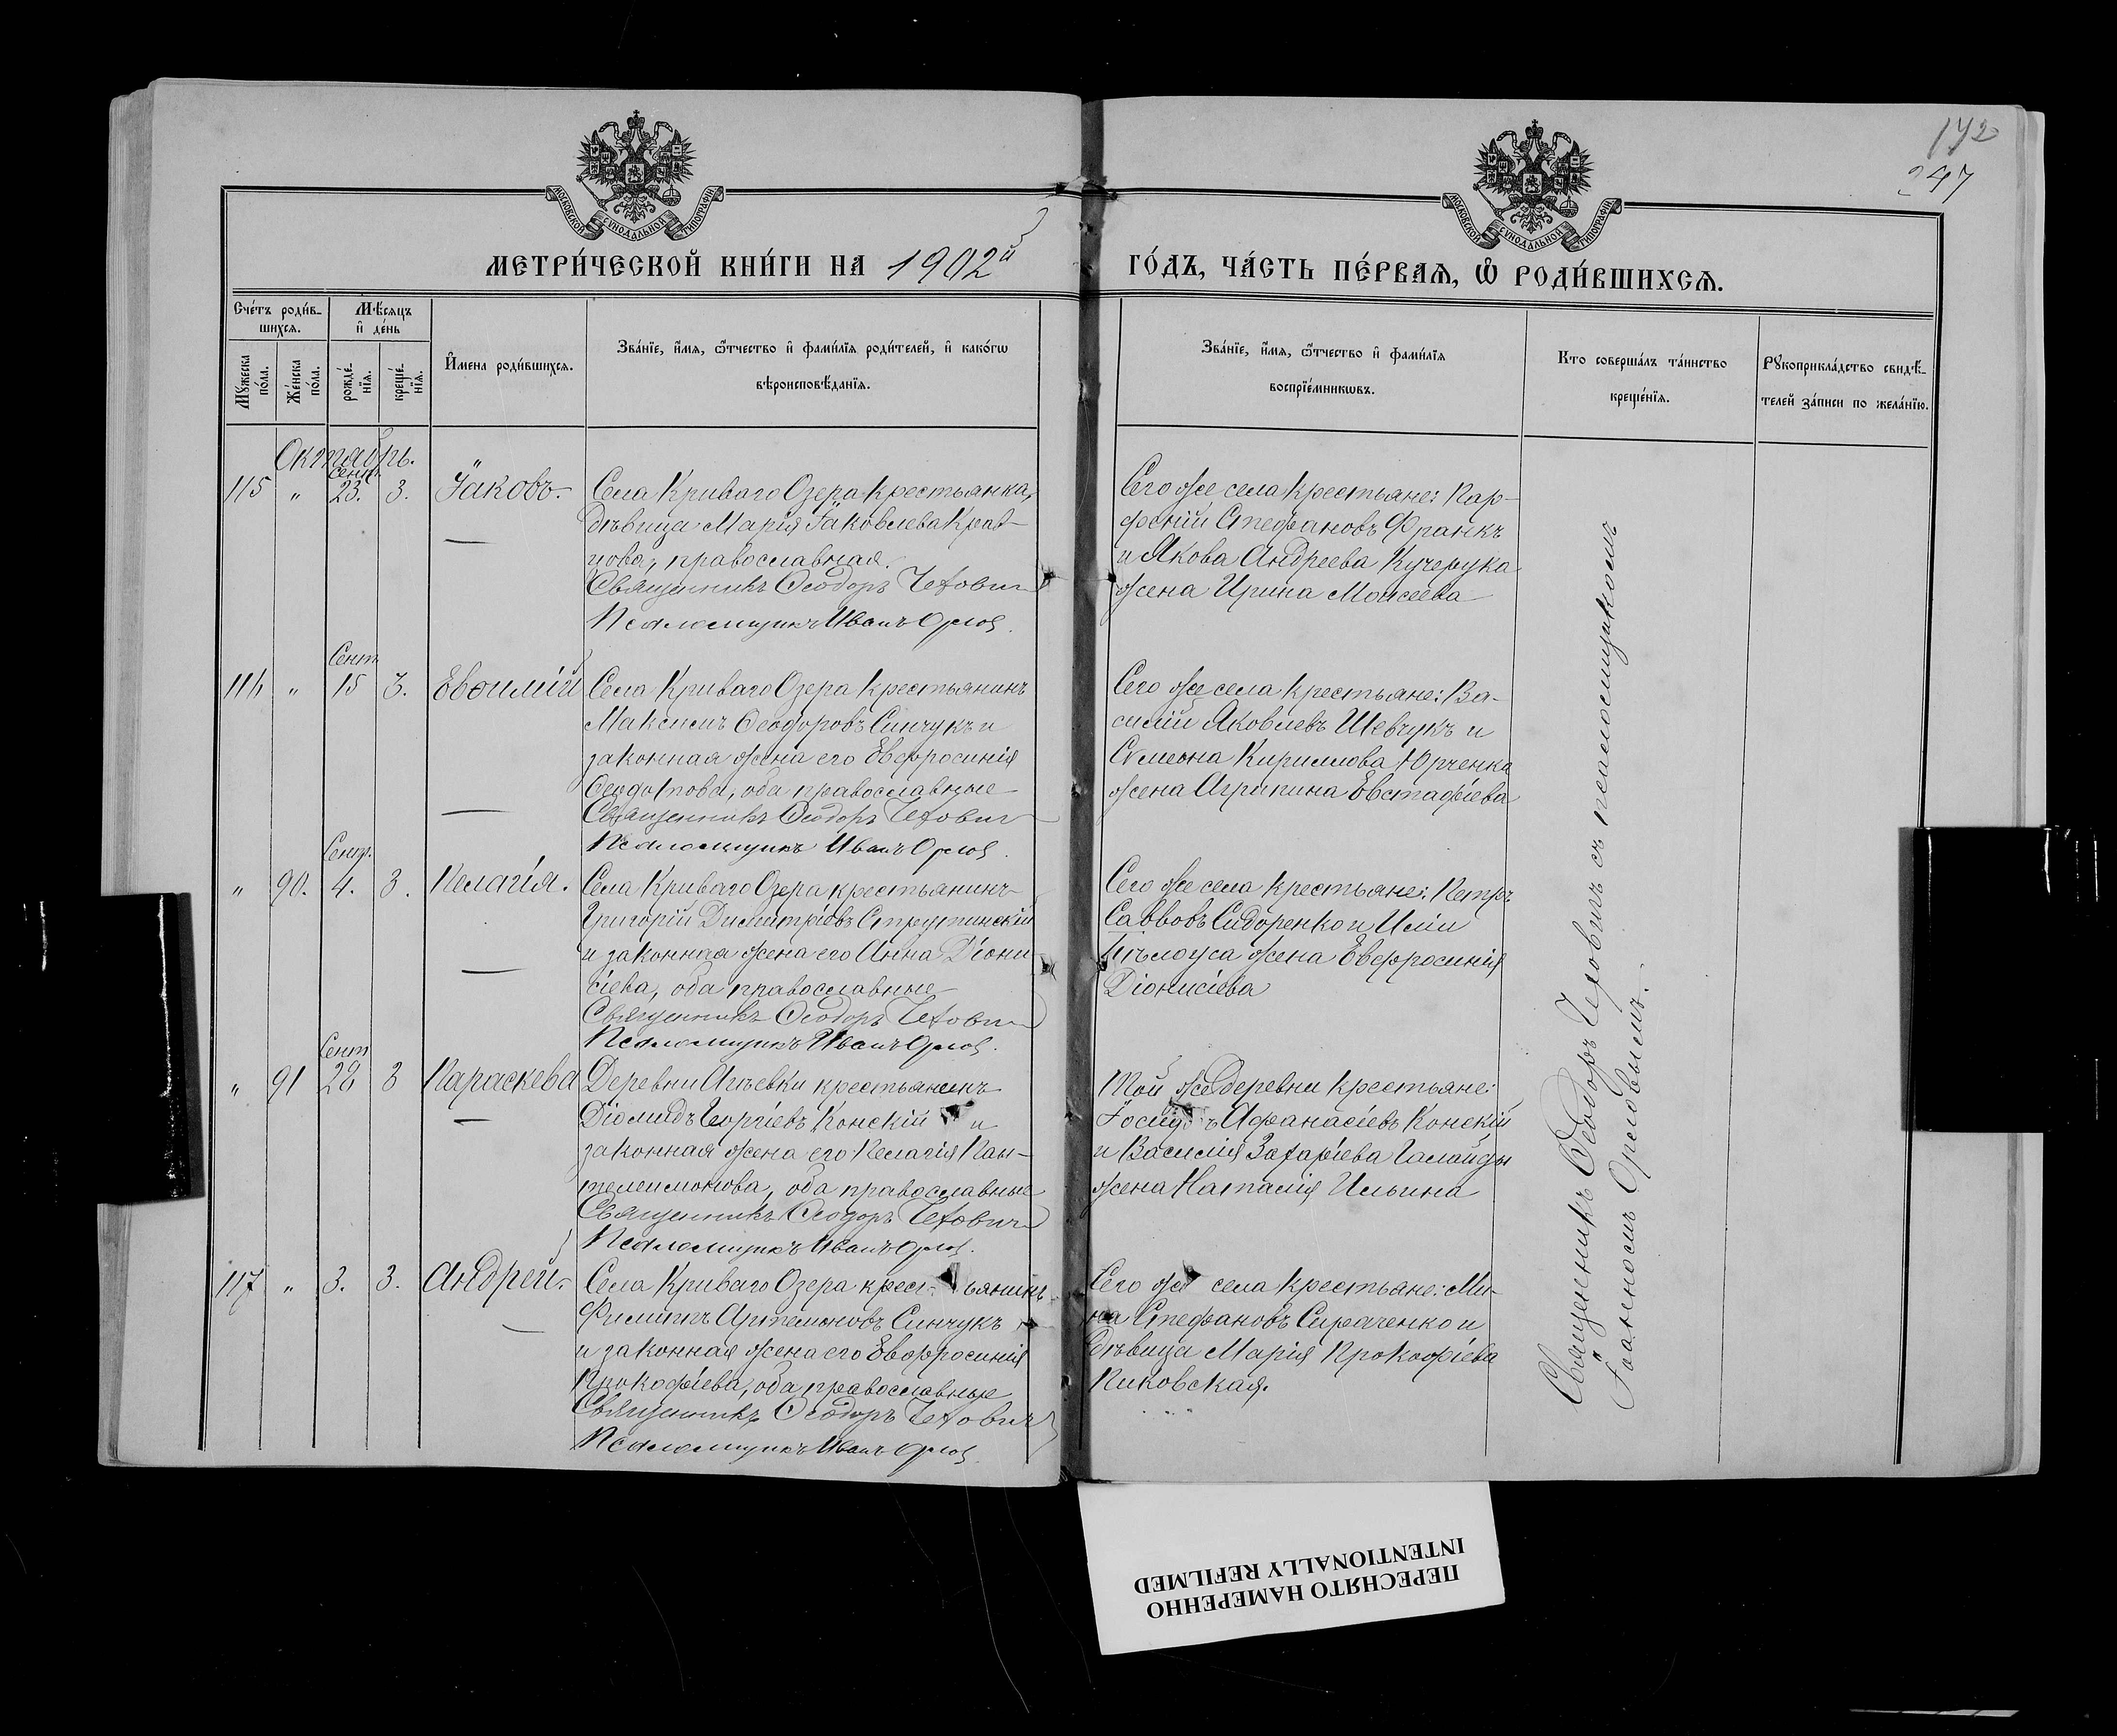 172
247
МОСКОВСКОЙ СѴНОДАЛЬНОЙ ТИПОГРАФІИ
МОСКОВСКОЙ СѴНОДАЛЬНОЙ ТИПОГРАФІИ
МЕТРИ́ЧЕСКОЙ КНИ́ГИ НА 1902й
ГО́ДЪ, ЧА́СТЬ ПЕ́РВАѦ, Ѡ҆ РОДИ́ВШИХСѦ.
Сче́тъ роди́в-
шихсѧ.
Мꙋ́жеска
по́ла.
Же́нска
по́ла.
Мѣ́сѧцъ
и҆ де́нь
рожде́-
нїѧ.
креще́-
нїѧ.
И҆мена̀ роди́вшихсѧ.
Зва́нїе, и҆́мѧ, ѻ҆́тчество и҆ фами́лїѧ роди́телей, и҆ како́гѡ
вѣроисповѣ́данїѧ.
Зва́нїе, и҆́мѧ, ѻ҆́тчество и҆ фами́лїѧ
воспрїе́мникѡвъ.
Кто̀ соверша́лъ та́инство
креще́нїѧ.
Рꙋкоприкла́дство свидѣ́-
телей за́писи по жела́нїю.
Октябрь.
Сент.
115 " 23. 3. Іаковъ.
Села Криваго Озера крестьянка,
дѣвица Марія Іаковлева Крав-
цова, православная.
Священникъ Ѳеодоръ Чехович
Псаломщикъ Иванъ Орлов.
Сего же села крестьяне: Пар-
феній Стефановъ Франкъ
и Якова Андреева Кучерука
жена Ирина Моисеева
Сент
116 " 15 3. Евѳимій
Села Криваго Озера крестьянинъ
Максимъ Ѳеодоровъ Синчукъ и
законная жена его Евфросинія
Ѳеодотова, оба православные
Священникъ Ѳеодоръ Чехович
Псаломщикъ Иванъ Орлов.
Сего же села крестьяне: Ва-
силій Яковлевъ Шевчукъ и
Симеона Кириллова Юрченка
жена Агрипина Евстафіева
Сент.
" 90. 4. 3. Пелагія.
Села Криваго Озера крестьянинъ
Григорій Димитріевъ Струтинскій
и законная жена его Анна Діони
сіева, оба православные
Священникъ Ѳеодоръ Чехович
Псаломщикъ Иванъ Орлов.
Сего же села крестьяне: Петръ
Саввовъ Сидоренко и Иліи
Бѣлоуса жена Евфросинія
Діонисіева
Сент
" 91 28 3 Параскева
Деревни Агѣевки крестьянинъ
Діомидъ Георгіевъ Конскій и
законная жена его Пелагія Пан-
телеимонова, оба православные
Священникъ Ѳеодоръ Чехович
Псаломщикъ Иванъ Орлов.
Той же деревни крестьяне:
Іосифъ Афанасіевъ Конскій
и Василія Захаріева Галайды
жена Наталія Ильина
117 " 3. 3. Андрей.
Села Криваго Озера крестьянинъ
Филиппъ Артемоновъ Синчукъ
и законная жена его Евфросинія
Прокофіева, оба православные
Священникъ Ѳеодоръ Чехович
Псаломщикъ Иванъ Орлов.
Сего же села крестьяне: Ми-
на Стефановъ и
дѣвица Марія Прокофіева
Пиковская.
Священникъ Ѳеодоръ Чеховичъ съ псаломщикомъ
Іоанномъ Орловымъ.
ПЕРЕСНЯТО НАМЕРЕННО
INTENTIONALLY REFILMED